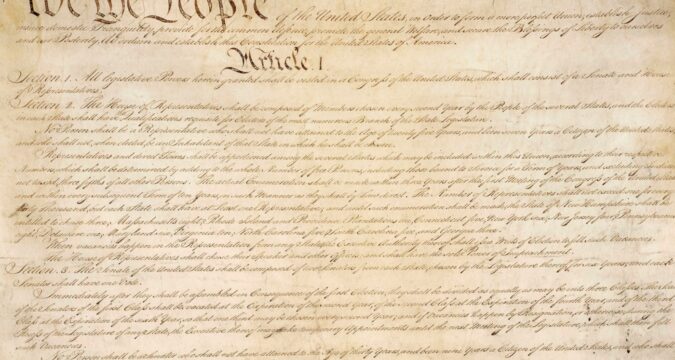 We the People
of the United States, in Order to form a more perfect Union, establish Justice,
insure domestic Tranquility, provide for the common defence, promote the general Welfare, and secure the Blessings of Liberty to ourselves
and our Posterity, do ordain and establish this Constitution for the United States of America.
Article. I.
Section. 1. All legislative Powers herein granted shall be vested in a Congress of the United States, which shall consist of a Senate and House
of Representatives.
Section. 2. The House of Representatives shall be composed of Members chosen every second Year by the People of the several States, and the Electors
in each State shall have the Qualifications requisite for Electors of the most numerous Branch of the State Legislature.
No Person shall be a Representative who shall not have attained to the Age of twenty five Years, and been seven Years a Citizen of the United States,
and who shall not, when elected, be an Inhabitant of that State in which he shall be chosen.
Representatives and direct Taxes shall be apportioned among the several States which may be included within this Union, according to their respective
Numbers, which shall be determined by adding to the whole Number of free Persons, including those bound to Service for a Term of Years, and excluding Indians
not taxed, three fifths of all other Persons. The actual Enumeration shall be made within three Years after the first Meeting of the Congress of the United States,
and within every subsequent Term of ten Years, in such Manner as they shall by Law direct. The Number of Representatives shall not exceed one for every
thirty Thousand, but each State shall have at Least one Representative; and until such enumeration shall be made, the State of New Hampshire shall be
entitled to chuse three, Massachusetts eight, Rhode Island and Providence Plantations one, Connecticut five, New York six, New Jersey four, Pennsylvania
eight, Delaware one, Maryland six, Virginia ten, North Carolina five, South Carolina five, and Georgia three.
When vacancies happen in the Representation from any State, the Executive Authority thereof shall issue Writs of Election to fill such Vacancies.
The House of Representatives shall chuse their Speaker and other Officers; and shall have the sole Power of Impeachment.
Section. 3. The Senate of the United States shall be composed of two Senators from each State, chosen by the Legislature thereof, for six Years; and each
Senator shall have one Vote.
Immediately after they shall be assembled in Consequence of the first Election, they shall be divided as equally as may be into three Classes. The Seats
of the Senators of the first Class shall be vacated at the Expiration of the second Year, of the second Class at the Expiration of the fourth Year, and of the third
Class at the Expiration of the sixth Year, so that one third may be chosen every second Year; and if Vacancies happen by Resignation, or otherwise, during the
Recess of the Legislature of any State, the Executive thereof may make temporary Appointments until the next Meeting of the Legislature, which shall then fill
such Vacancies.
No Person shall be a Senator who shall not have attained to the Age of thirty Years, and been nine Years a Citizen of the United States, and who shall